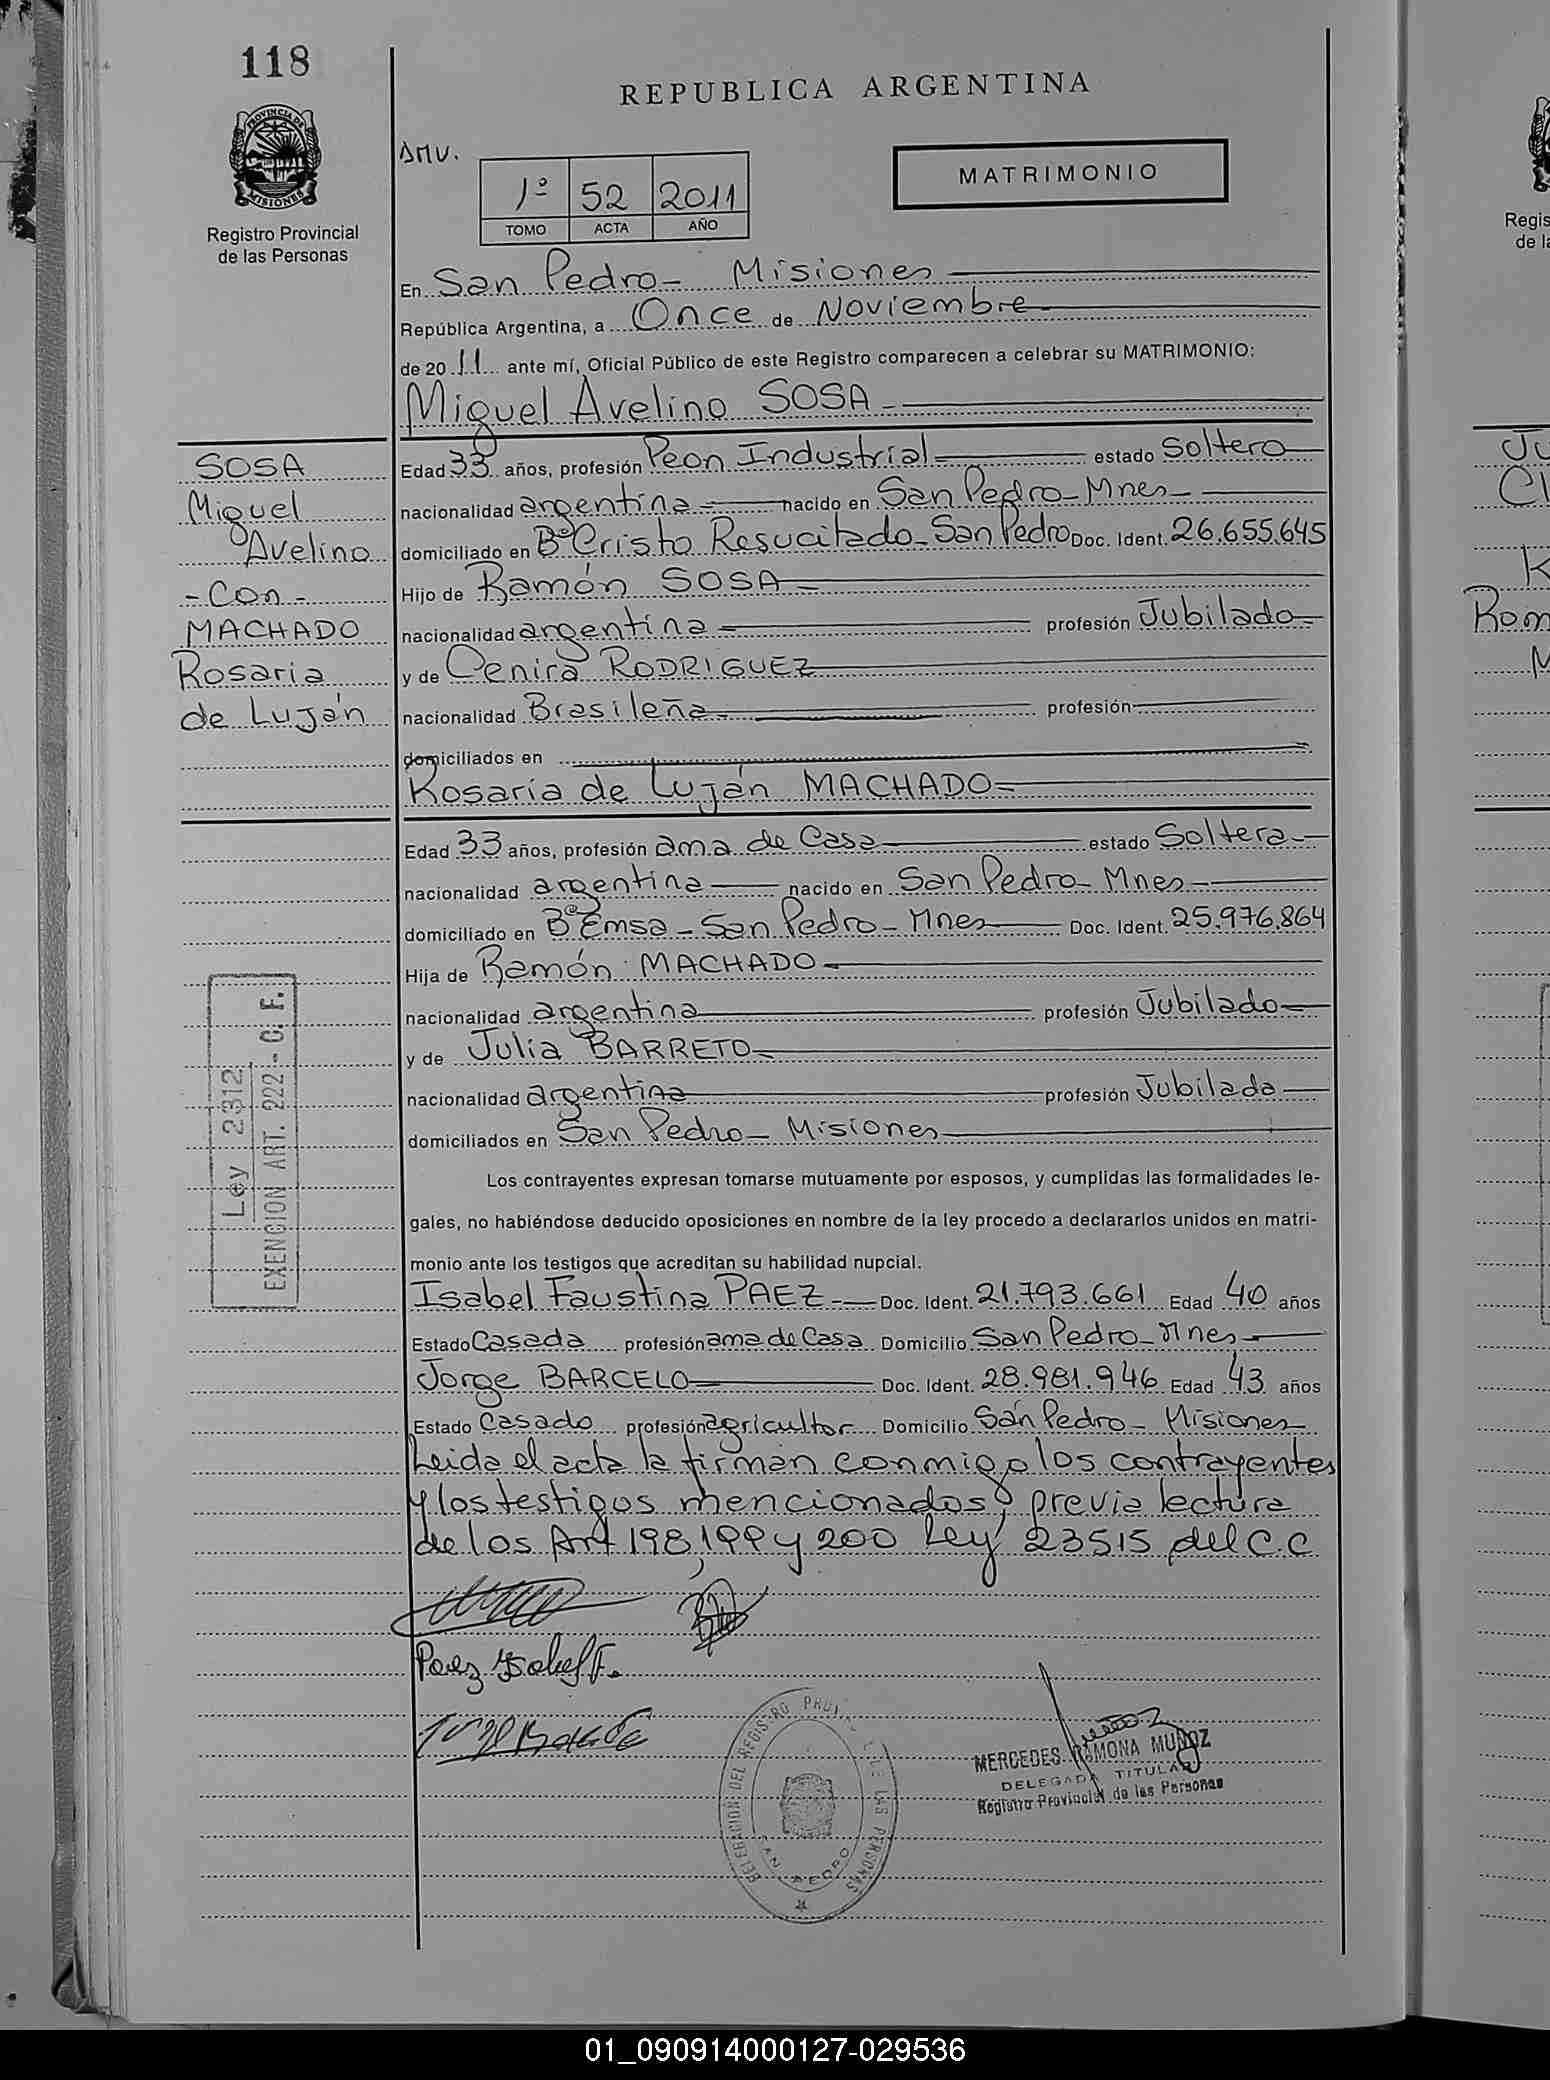 118
REPUBLICA ARGENTINA
PROVINCIA DE
MISIONES
Registro Provincial
de las Personas
MATRIMONIO
1º 52 2011
TOMO ACTA AÑO
En San Pedro - Misiones
República Argentina, a Once de Noviembre
de 20 11 ante mí, Oficial Público de este Registro comparecen a celebrar su MATRIMONIO:
Miguel Avelino SOSA -
SOSA
Miguel
Avelino
- Con -
MACHADO
Rosaria
de Luján
Edad 33 años, profesión Peon Industrial estado Soltero
nacionalidad argentina nacido en San Pedro - Mnes -
domiciliado en Bº Cristo Resucitado - San Pedro Doc. Ident. 26.655.645
Hijo de Ramón SOSA
nacionalidad argentina profesión Jubilado
y de Cenira RODRIGUEZ
nacionalidad Brasileña profesión
domiciliados en
Rosaria de Luján MACHADO
Edad 33 años, profesión ama de Casa estado Soltera
nacionalidad argentina nacido en San Pedro - Mnes -
domiciliado en Bº Emsa - San Pedro - Mnes Doc. Ident. 25.976.864
Hija de Ramón MACHADO
nacionalidad argentina profesión Jubilado
y de Julia BARRETO
nacionalidad argentina profesión Jubilada
domiciliados en San Pedro - Misiones
Ley 2312
EXENCION ART. 222 - C. F.
Los contrayentes expresan tomarse mutuamente por esposos, y cumplidas las formalidades le-
gales, no habiéndose deducido oposiciones en nombre de la ley procedo a declararlos unidos en matri-
monio ante los testigos que acreditan su habilidad nupcial.
Isabel Faustina PAEZ Doc. Ident. 21.793.661 Edad 40 años
Estado Casada profesión ama de Casa Domicilio San Pedro - Mnes
Jorge BARCELO Doc. Ident. 28.981.946 Edad 43 años
Estado Casado profesión agricultor Domicilio San Pedro - Misiones
Leida el acta la firman conmigo los contrayentes
y los testigos mencionados, previa lectura
de los Art 198, 199 y 200 Ley 23515 del C.C
Paez Isabel F.
DELEGACION DEL REGISTRO PROVINCIAL DE LAS PERSONAS
SAN PEDRO
MERCEDES RAMONA MUÑOZ
DELEGADA TITULAR
Registro Provincial de las Personas
Regis
de la
01_090914000127-029536